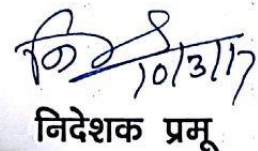 10/3/17
निदेशक प्रमू